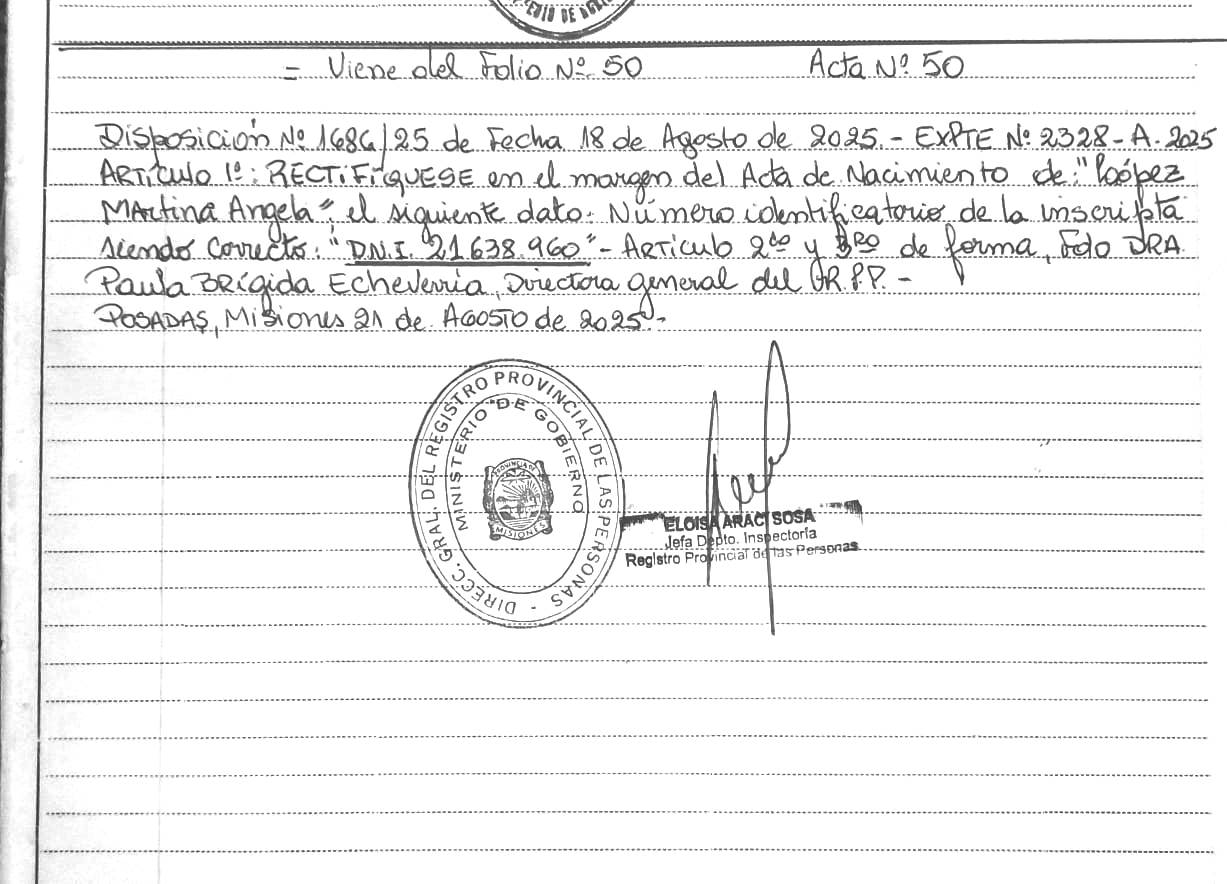 = Viene del Folio Nº 50 Acta Nº 50
Disposición Nº 1686/25 de Fecha 18 de Agosto de 2025.- EXPTE Nº 2328-A. 2025
ARTÍCULO 1º: RECTIFÍQUESE en el margen del Acta de Nacimiento de: "López
MArtina Angela" el siguiente dato: Número identificatorio de la inscripta
siendo Correcto: "D.N.I. 21.638.960"- ARTÍCULO 2do y 3RO de forma, Fdo DRA.
Paula BRÍgida Echeverría, Directora general del R.P.P. -
POSADAS, Misiones 21 de AGOSTO de 2025.-
DIRECC. GRAL. DEL REGISTRO PROVINCIAL DE LAS PERSONAS -
MINISTERIO DE GOBIERNO
PROVINCIA DE
MISIONES
ELOISA ARACI SOSA
Jefa Depto. Inspectoría
Registro Provincial de las Personas